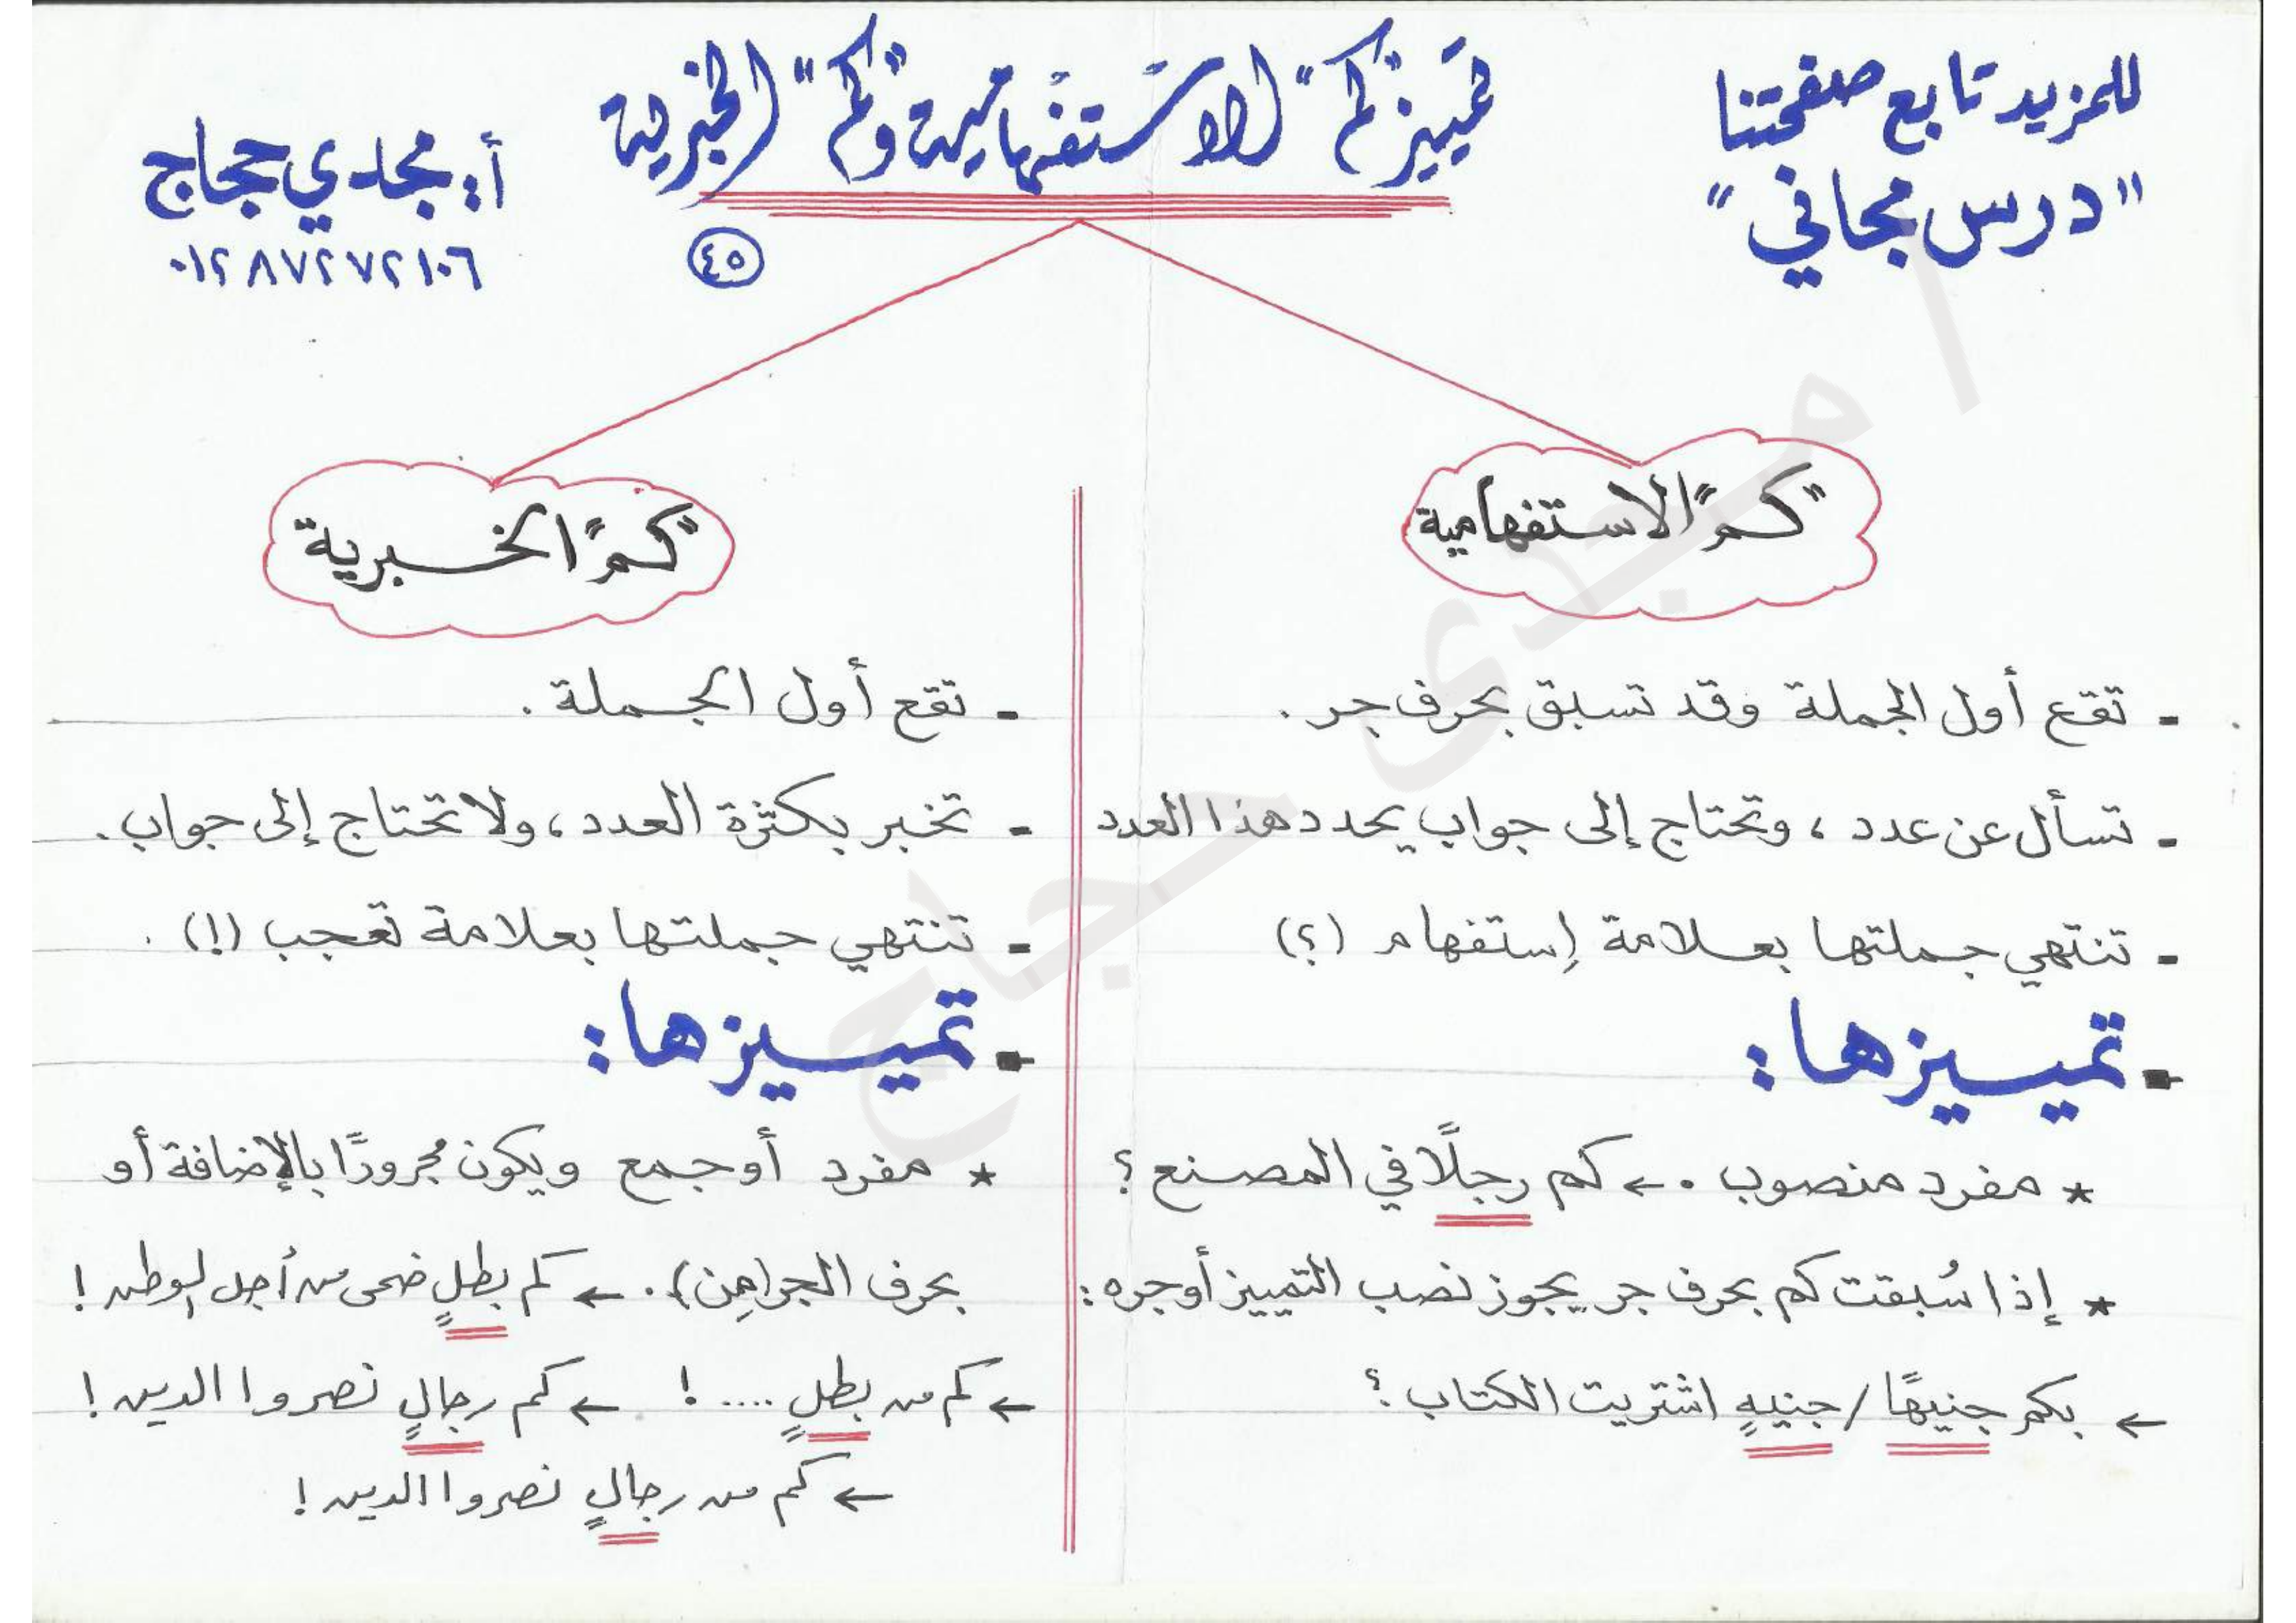 للمزيد تابع صفحتنا
"درس مجاني"
تمييز "كم" الاستفهامية و"كم" الخبرية
٤٥
أ: مجدي حجاج
٠١٢٨٧٢٧٢١٠٦
"كم" الاستفهامية
- تقع أول الجملة وقد تسبق بحرف جر.
- تسأل عن عدد، وتحتاج إلى جواب يحدد هذا العدد
- تنتهي جملتها بعلامة إستفهام (؟)
- تمييزها:
* مفرد منصوب. ← كم رجلًا في المصنع؟
* إذا سُبقت كم بحرف جر يجوز نصب التمييز أو جره:
← بكم جنيهًا / جنيهٍ اشتريت الكتاب؟
"كم" الخبرية
- تقع أول الجملة.
- تخبر بكثرة العدد، ولا تحتاج إلى جواب.
- تنتهي جملتها بعلامة تعجب (!).
- تمييزها:
* مفرد أو جمع ويكون مجرورًا بالإضافة أو
بحرف الجر (مِن). ← كم بطلٍ ضحى من أجل الوطن!
← كم من بطلٍ ....! ← كم رجالٍ نصروا الدين!
← كم من رجالٍ نصروا الدين!
أ/ مجدى حجاج